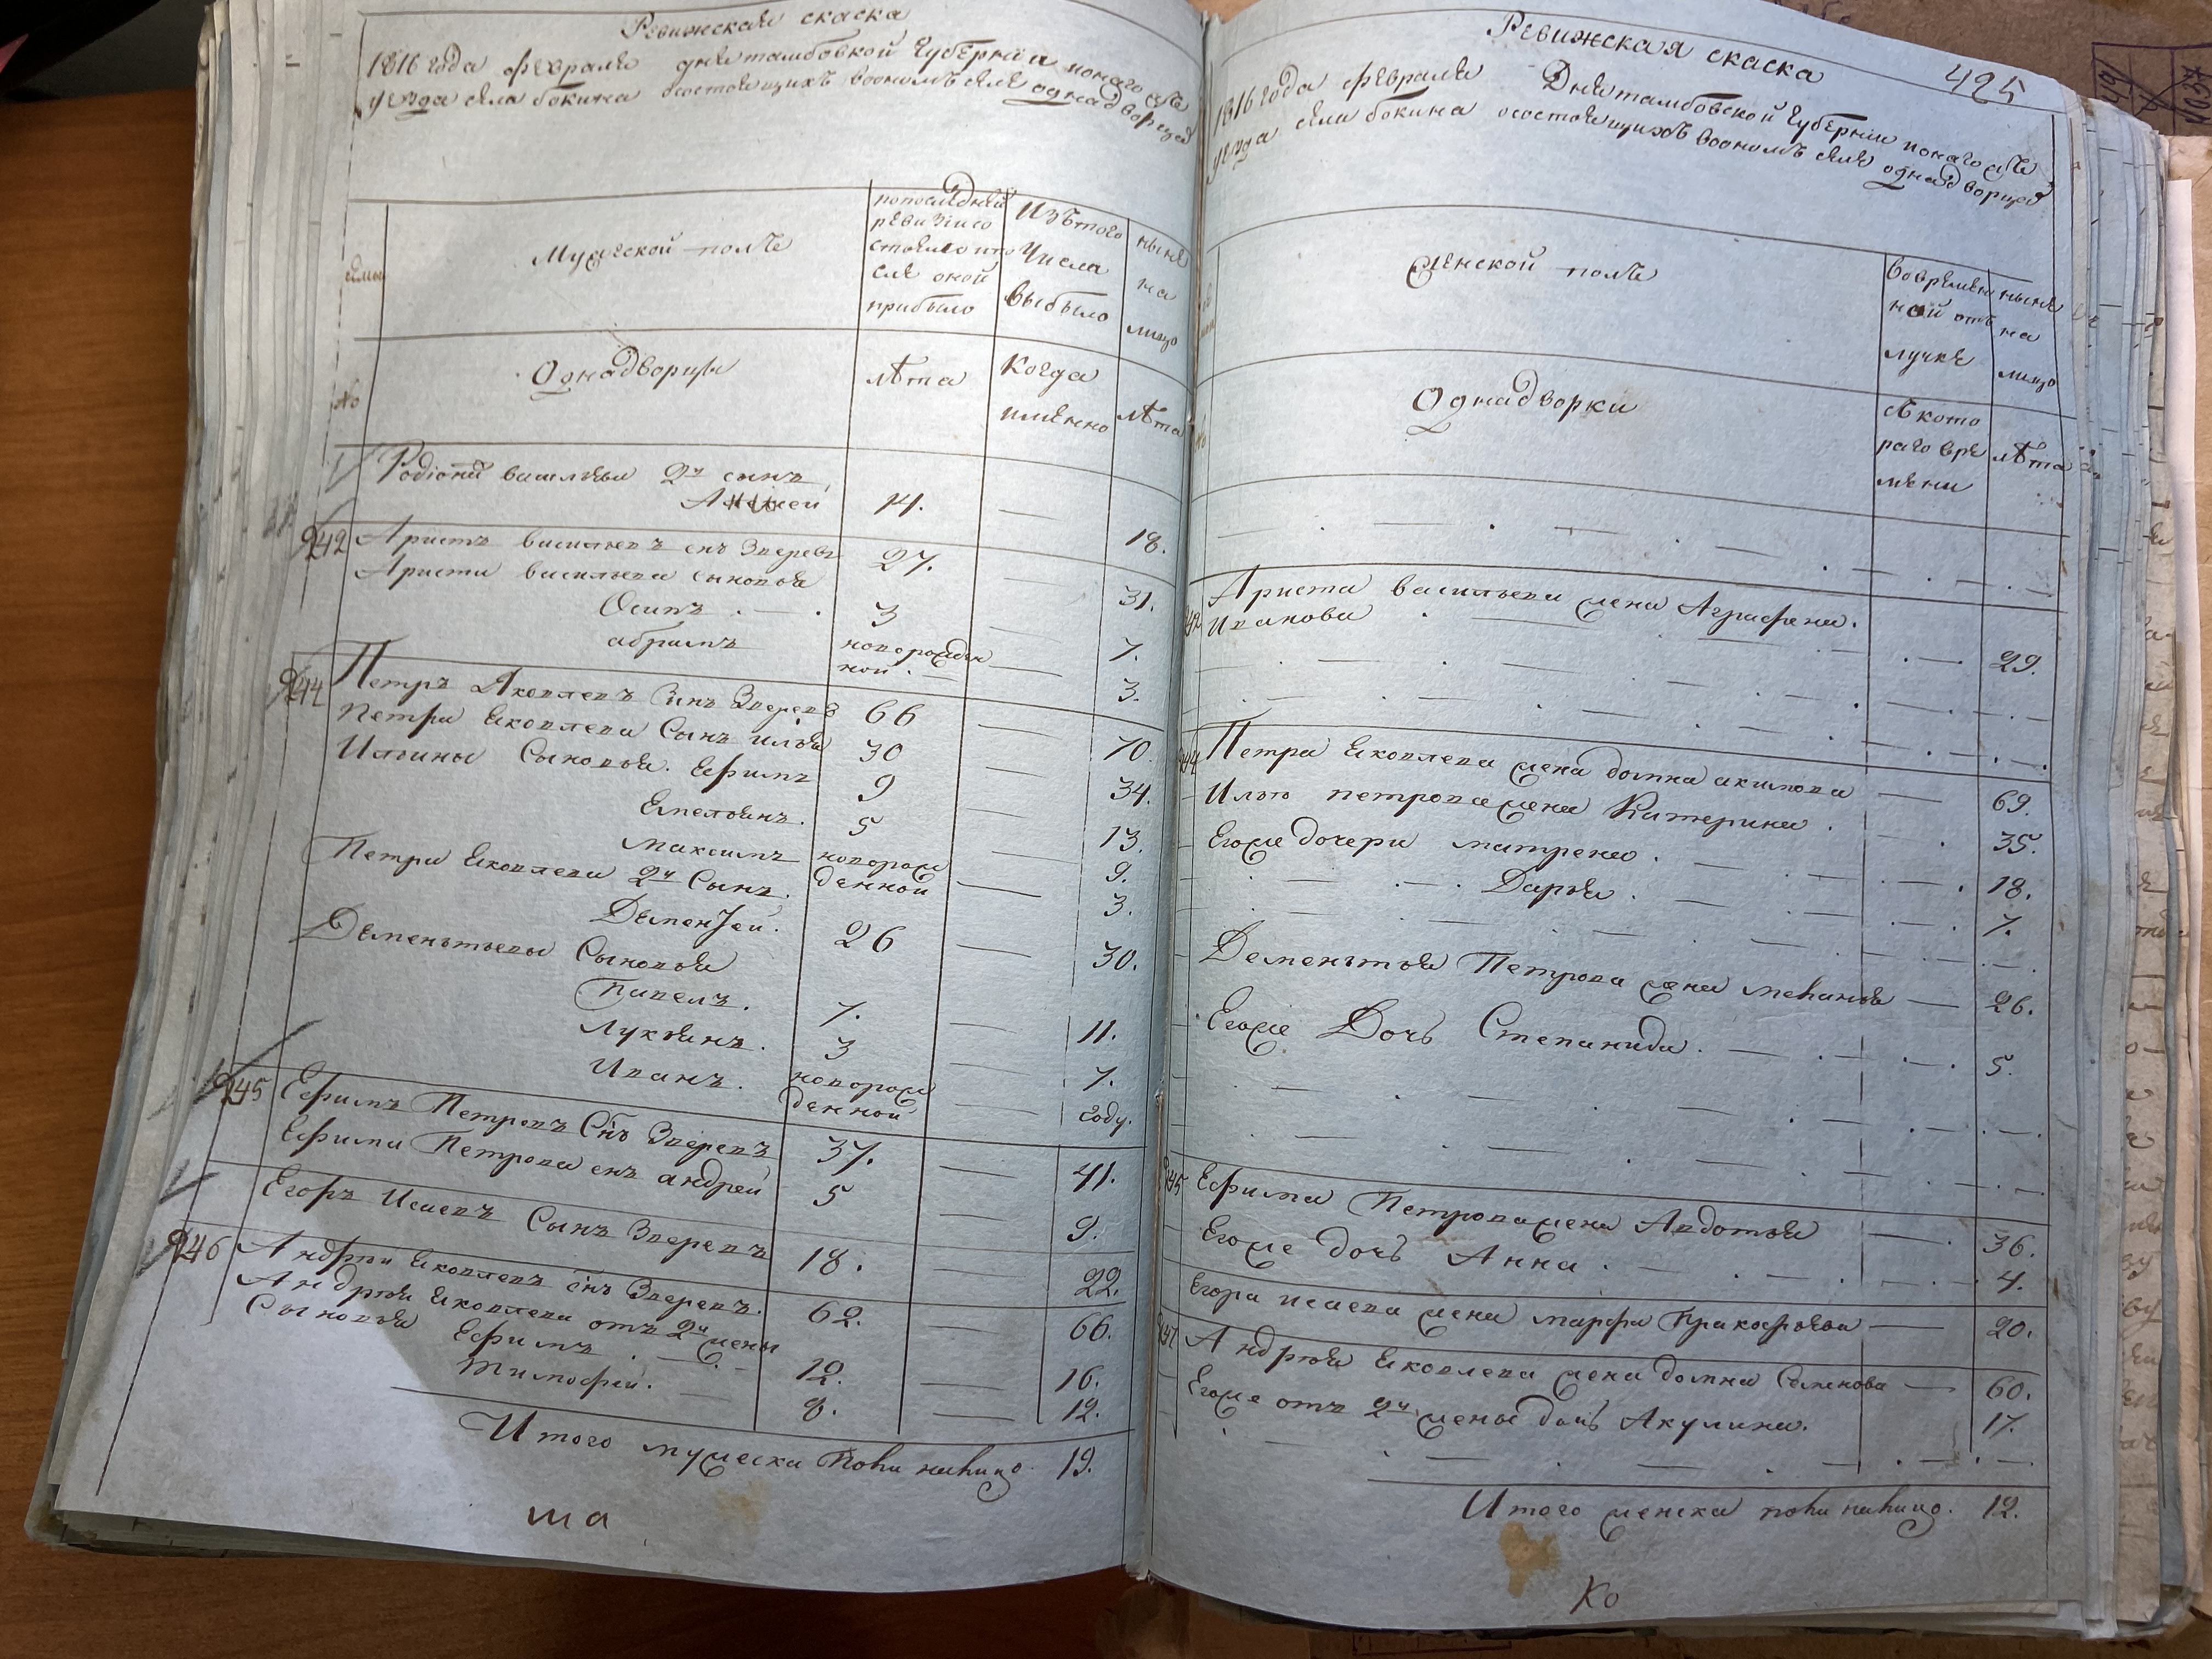 Ревижская скаска
1816 года февраля дня тамбовской губернии
уезда села бокина осостоящихъ воономъ селе однадворцов
Мужской полъ
попоследней
ревизии со
стояло ипо
сле оной
прибыло
Изътого
числа
выбыло
ныне
на
лицо
№
Однадворцы
лѣта
Когда
имѣнно
лѣта
Родионы васильева 2й сынъ
14. — 18.
242 Аристъ васильевъ снъ Зверевъ 27. — 31.
Ариста васильева сыновья
Осипъ . — . 3 — 7.
абрамъ новорожден
ной — 3.
244 Петръ Яковлевъ Снъ Зверевъ 66 — 70.
Петра Яковлева Сынъ илья 30 — 34.
Ильины Сыновья. Ефимъ 9 — 13.
Емельянъ. 5 — 9.
Максимъ новорож
денной — 3.
Петра Яковлева 2й Сынъ.
Деменѣтей. 26 — 30.
Деменьтьевы Сыновья
Павелъ. 7. — 11.
Лукьянъ. 3 — 7.
Иванъ. новорож
денной — году.
245 Ефимъ Петровъ Снъ Зверевъ 37. — 41.
Ефима Петрова снъ андрей 5 — 9.
Егоръ Исаевъ Сынъ Зверевъ 18. — 22.
246 Андрей Яковлевъ снъ Зверевъ. 62. — 66.
Андрея Яковлева отъ 2й жены
Сыновья Ефимъ . — . 12. — 16.
Тимофей. — 8. — 12.
Итого мужеска полу налицо 19.
ша
425
Ревижская скаска
1816 года февраля Дня тамбовской губернии
уезда села бокина осостоящихъ воономъ селе однадворцов
Женской полъ
вовремян
ной отъ
лучке
ныне
на
лицо
№
Однадворки
сѣкото
раго вре
мени
лѣта
242 Ариста васильева жена Аграфена.
Иванова . — 29.
244 Петра Яковлева жена домна акимова — 69.
Илью петрова жена Катерина . 35.
Егоже дочери матрена . — 18.
Дарья . — 7.
Деменьтья Петрова жена меланья — 26.
Егоже Дочь Степанида. — 5.
245 Ефима Петрова жена Авдотья — 36.
Егоже дочь Анна . — 4.
Егора исаева жена марфа Пракофьева — 20.
Андрея Яковлева жена домна Семенова — 60.
Егоже отъ 2й жены дочь Акулина. 17.
Итого женска полу налицо. 12.
Ко